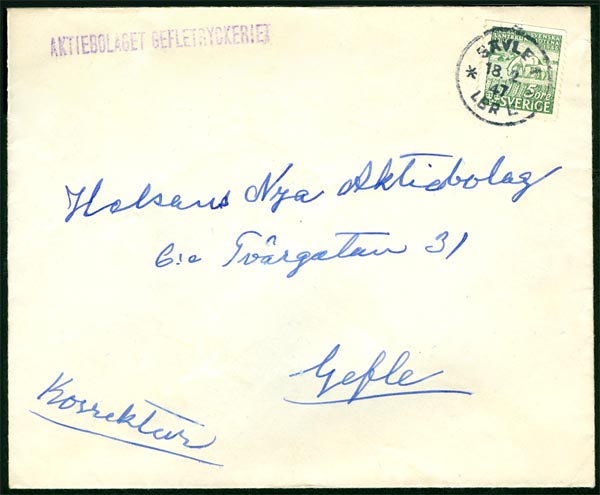 AKTIEBOLAGET GEFLETRYCKERIET
GÄVLE
18.2
47
LBR L
SVENSKA
5 ÖRE
SVERIGE
Helsans Nya Aktiebolag
6:e Tvärgatan 31
Gefle
Korrektur